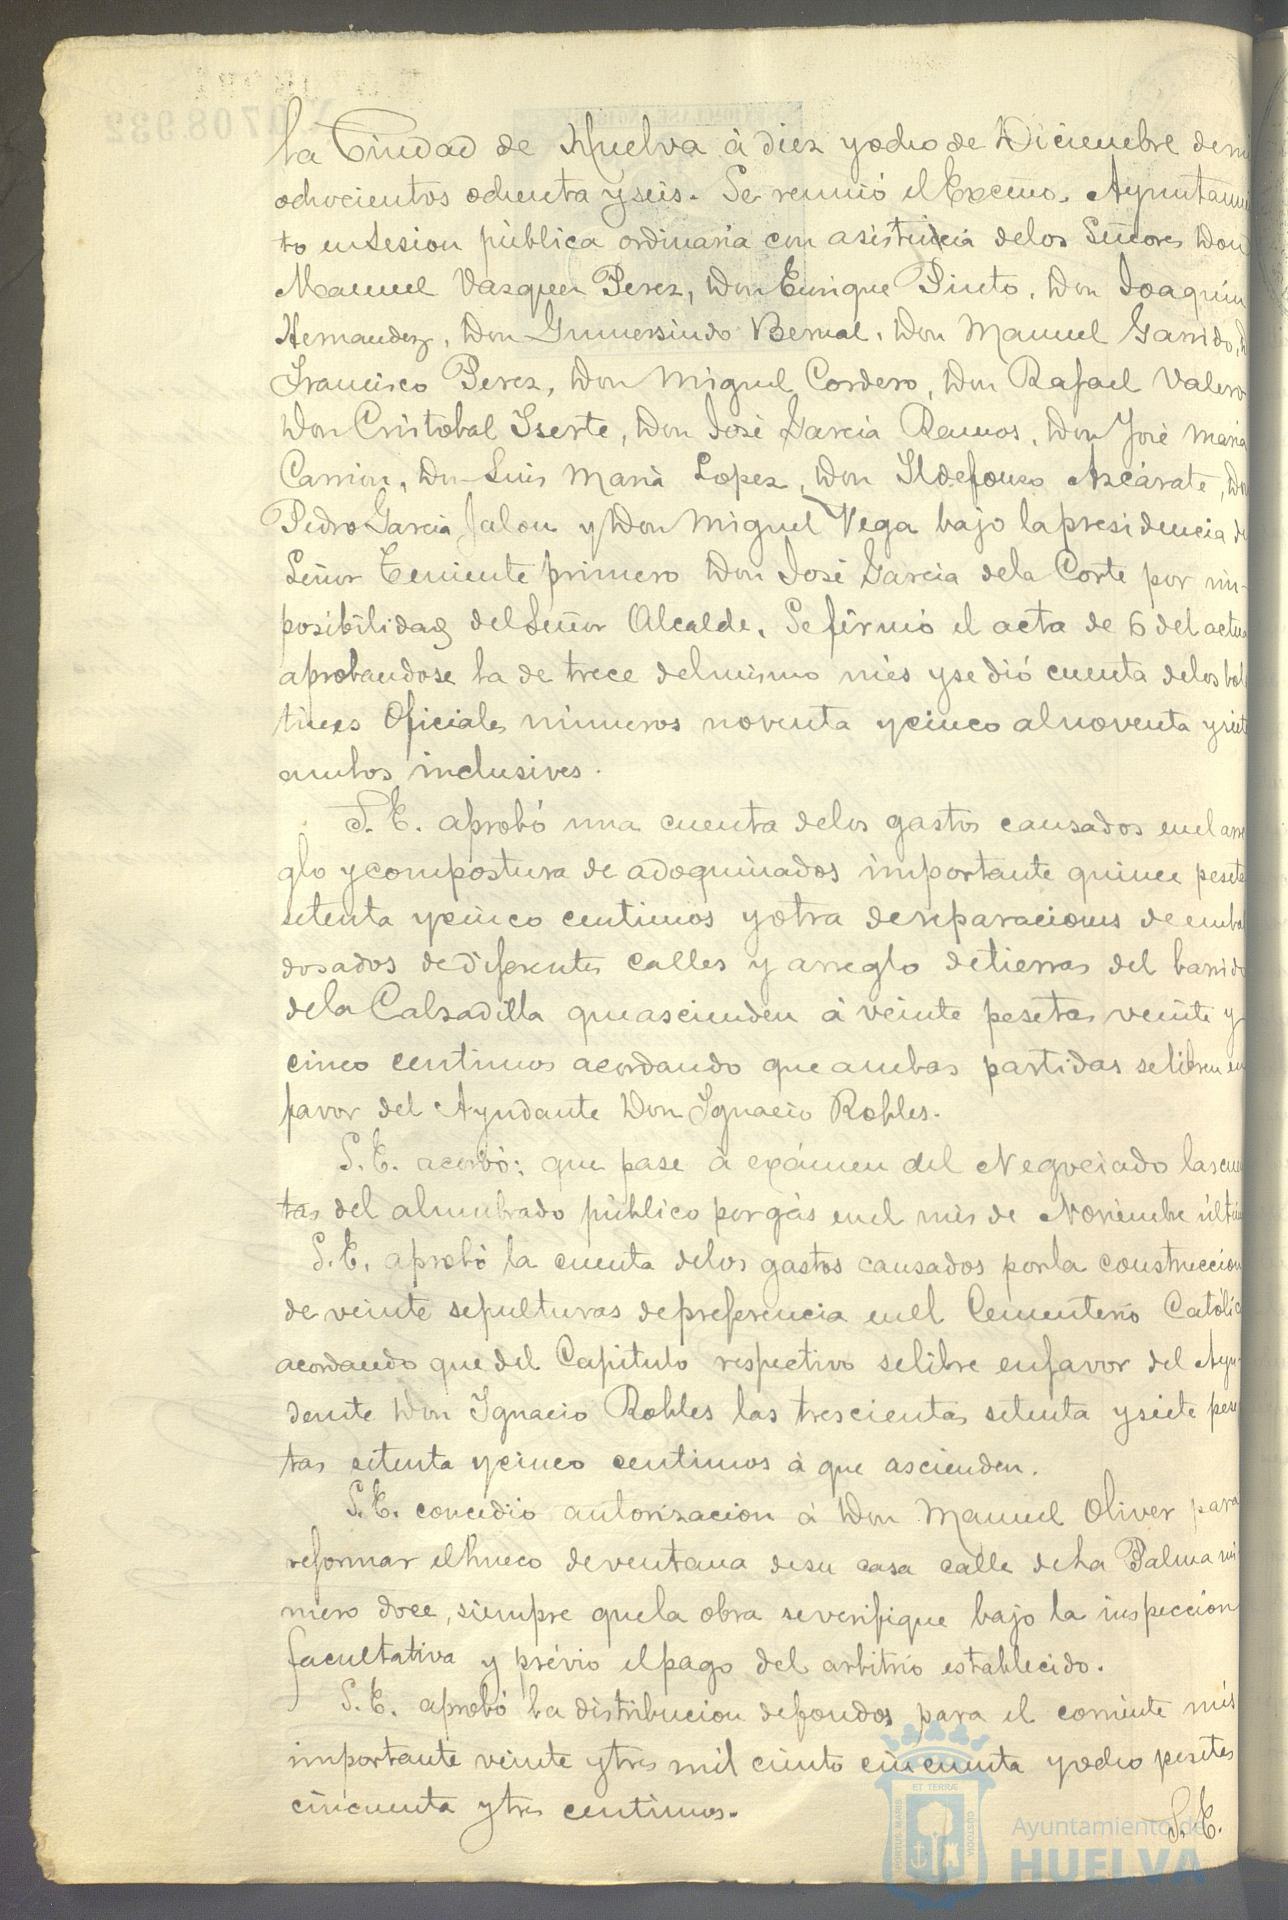 la Ciudad de Huelva á diez y ocho de Diciembre de mi
ochocientos ochenta y seis. Se reunió el Excmo. Ayuntamien
to en Sesion pública ordinaria con asistencia de los Señores Don
Manuel Vazquez Perez, Don Enrique Pinto, Don Joaquin
Hernandez, Don Gumersindo Bernal, Don Manuel Garrido, D
Francisco Perez, Don Miguel Cordero, Don Rafael Valero
Don Cristobal Iserte, Don José Garcia Ramos, Don José Maria
Carrion, Dn Luis Maria Lopez, Don Ildefonso Azcárate, Don
Pedro Garcia Jalon y Don Miguel Vega bajo la presidencia de
Señor Teniente primero Don José Garcia de la Corte por im-
posibilidad del Señor Alcalde. Se firmó el acta de 6 del actua
aprobandose la de trece del mismo mes y se dió cuenta de los bole
tines Oficiales números noventa y cinco al noventa y siete
ambos inclusives.
S. E. aprobó una cuenta de los gastos causados en el arre
glo y compostura de adoquinados importante quince peseta
setenta y cinco centimos y otra de reparaciones de embal
dosados de diferentes calles y arreglo de tierras del barrido
de la Calzadilla que ascienden á veinte pesetas veinte y
cinco centimos acordando que ambas partidas se libren en
favor del Ayudante Don Ignacio Robles.
S. E. acordó: que pase á exámen del Negociado las cuen
tas del alumbrado público por gás en el mes de Noviembre últim
S. E. aprobó la cuenta de los gastos causados por la construccion
de veinte sepulturas de preferencia en el Cementerio Católic
acordando que del Capitulo respectivo se libre en favor del Ayu-
dante Don Ignacio Robles las trescientas setenta y siete pese
tas setenta y cinco centimos á que ascienden.
S. E. concedió autorizacion á Don Manuel Oliver para
reformar el hueco de ventana de su casa calle de La Palma nú
mero doce, siempre que la obra se verifique bajo la inspeccion
facultativa y prévio el pago del arbitrio establecido.
S. E. aprobó la distribucion de fondos para el corriente mes
importante veinte y tres mil ciento cincuenta y ocho pesetas
cincuenta y tres centimos.
S. E.
ET TERRÆ
PORTUS MARIS
CUSTODIA
Ayuntamiento de
HUELVA